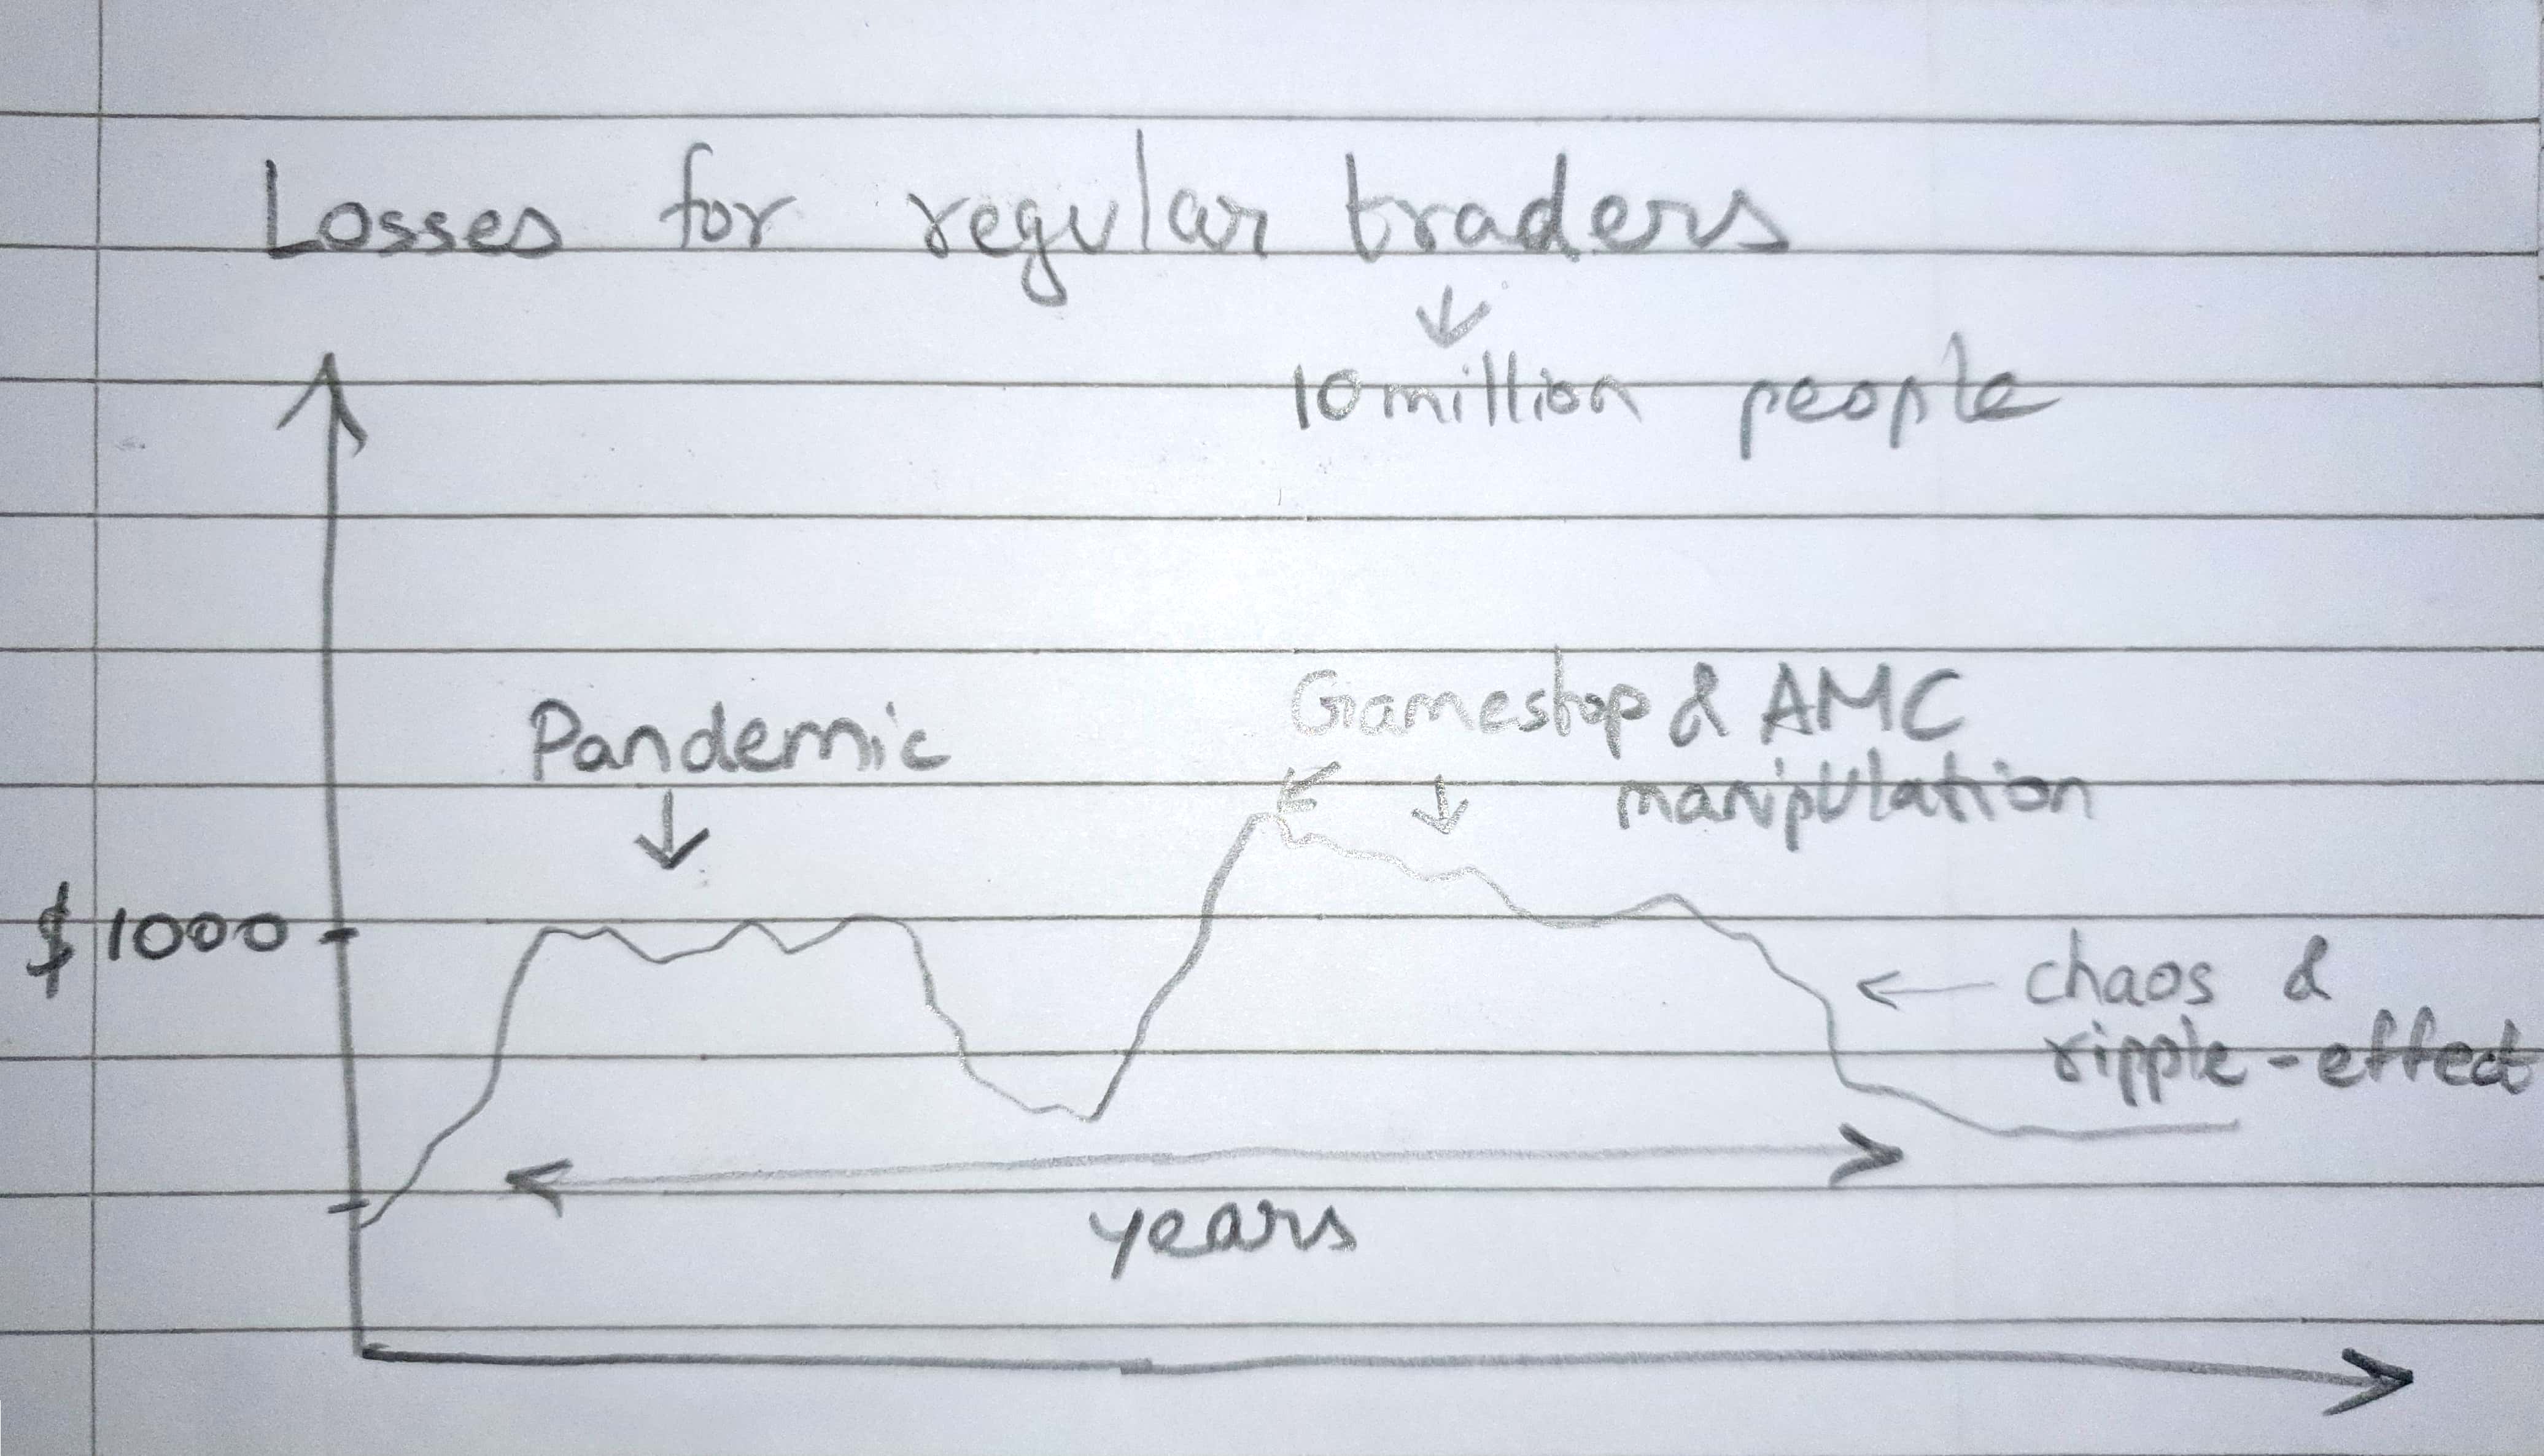 Losses for regular traders
10 million people
Pandemic
Gamestop & AMC
manipulation
$1000
chaos &
ripple-effect
years